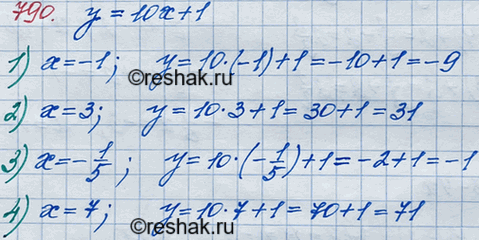 790. y = 10x+1
1) x=-1; y=10·(-1)+1=-10+1=-9
©reshak.ru
2) x=3; y=10·3+1=30+1=31
3) x=-1/5; y=10·(-1/5)+1=-2+1=-1
©reshak.ru
4) x=7; y=10·7+1=70+1=71